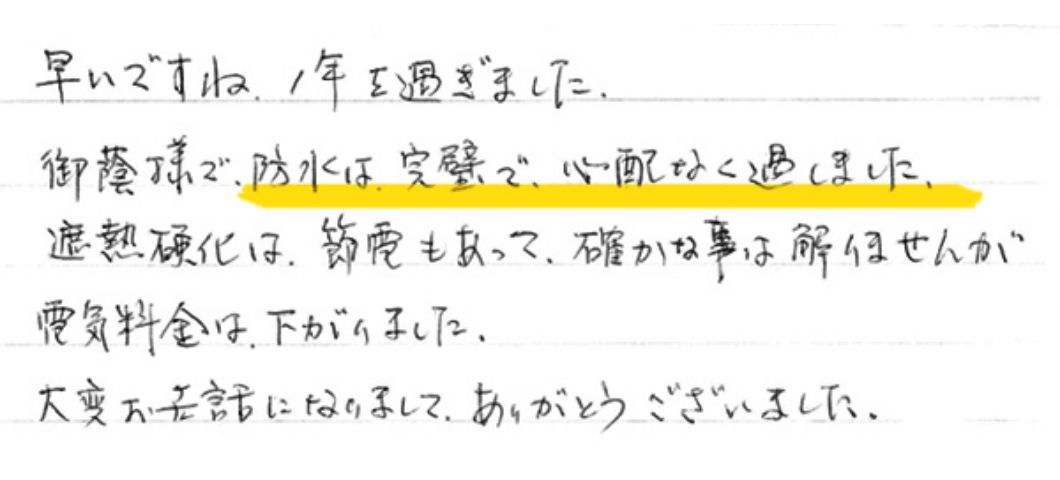 早いですね、1年を過ぎました。
御蔭様で、防水は、完璧で、心配なく過しました、
遮熱硬化は、節電もあって、確かな事は解りませんが
電気料金は、下がりました。
大変お世話になりまして、ありがとうございました。